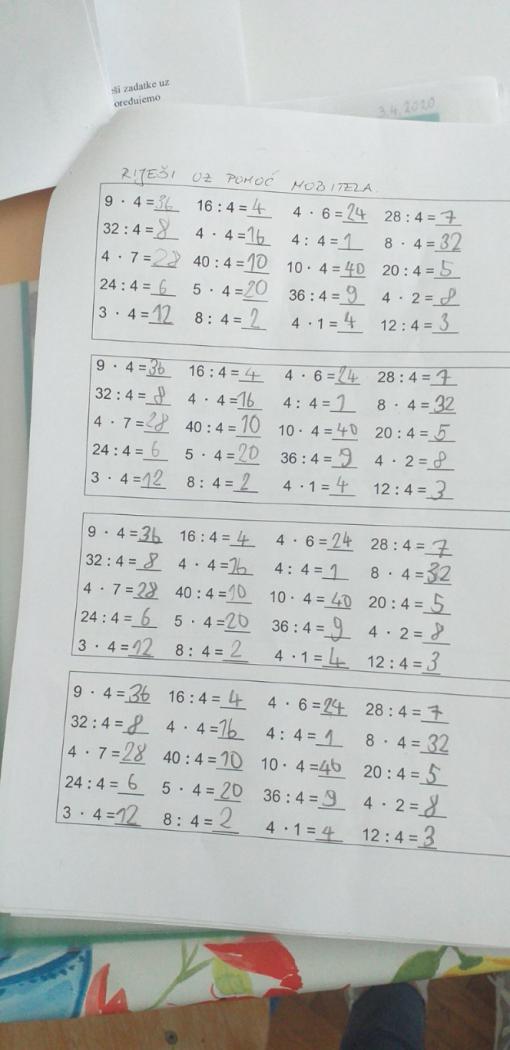 ši zadatke uz
oređujemo
3.4.2020
RIJEŠI UZ POMOĆ MOBITELA.
9 · 4 = 36 16 : 4 = 4 4 · 6 = 24 28 : 4 = 7
32 : 4 = 8 4 · 4 = 16 4 : 4 = 1 8 · 4 = 32
4 · 7 = 28 40 : 4 = 10 10 · 4 = 40 20 : 4 = 5
24 : 4 = 6 5 · 4 = 20 36 : 4 = 9 4 · 2 = 8
3 · 4 = 12 8 : 4 = 2 4 · 1 = 4 12 : 4 = 3
9 · 4 = 36 16 : 4 = 4 4 · 6 = 24 28 : 4 = 7
32 : 4 = 8 4 · 4 = 16 4 : 4 = 1 8 · 4 = 32
4 · 7 = 28 40 : 4 = 10 10 · 4 = 40 20 : 4 = 5
24 : 4 = 6 5 · 4 = 20 36 : 4 = 9 4 · 2 = 8
3 · 4 = 12 8 : 4 = 2 4 · 1 = 4 12 : 4 = 3
9 · 4 = 36 16 : 4 = 4 4 · 6 = 24 28 : 4 = 7
32 : 4 = 8 4 · 4 = 16 4 : 4 = 1 8 · 4 = 32
4 · 7 = 28 40 : 4 = 10 10 · 4 = 40 20 : 4 = 5
24 : 4 = 6 5 · 4 = 20 36 : 4 = 9 4 · 2 = 8
3 · 4 = 12 8 : 4 = 2 4 · 1 = 4 12 : 4 = 3
9 · 4 = 36 16 : 4 = 4 4 · 6 = 24 28 : 4 = 7
32 : 4 = 8 4 · 4 = 16 4 : 4 = 1 8 · 4 = 32
4 · 7 = 28 40 : 4 = 10 10 · 4 = 40 20 : 4 = 5
24 : 4 = 6 5 · 4 = 20 36 : 4 = 9 4 · 2 = 8
3 · 4 = 12 8 : 4 = 2 4 · 1 = 4 12 : 4 = 3